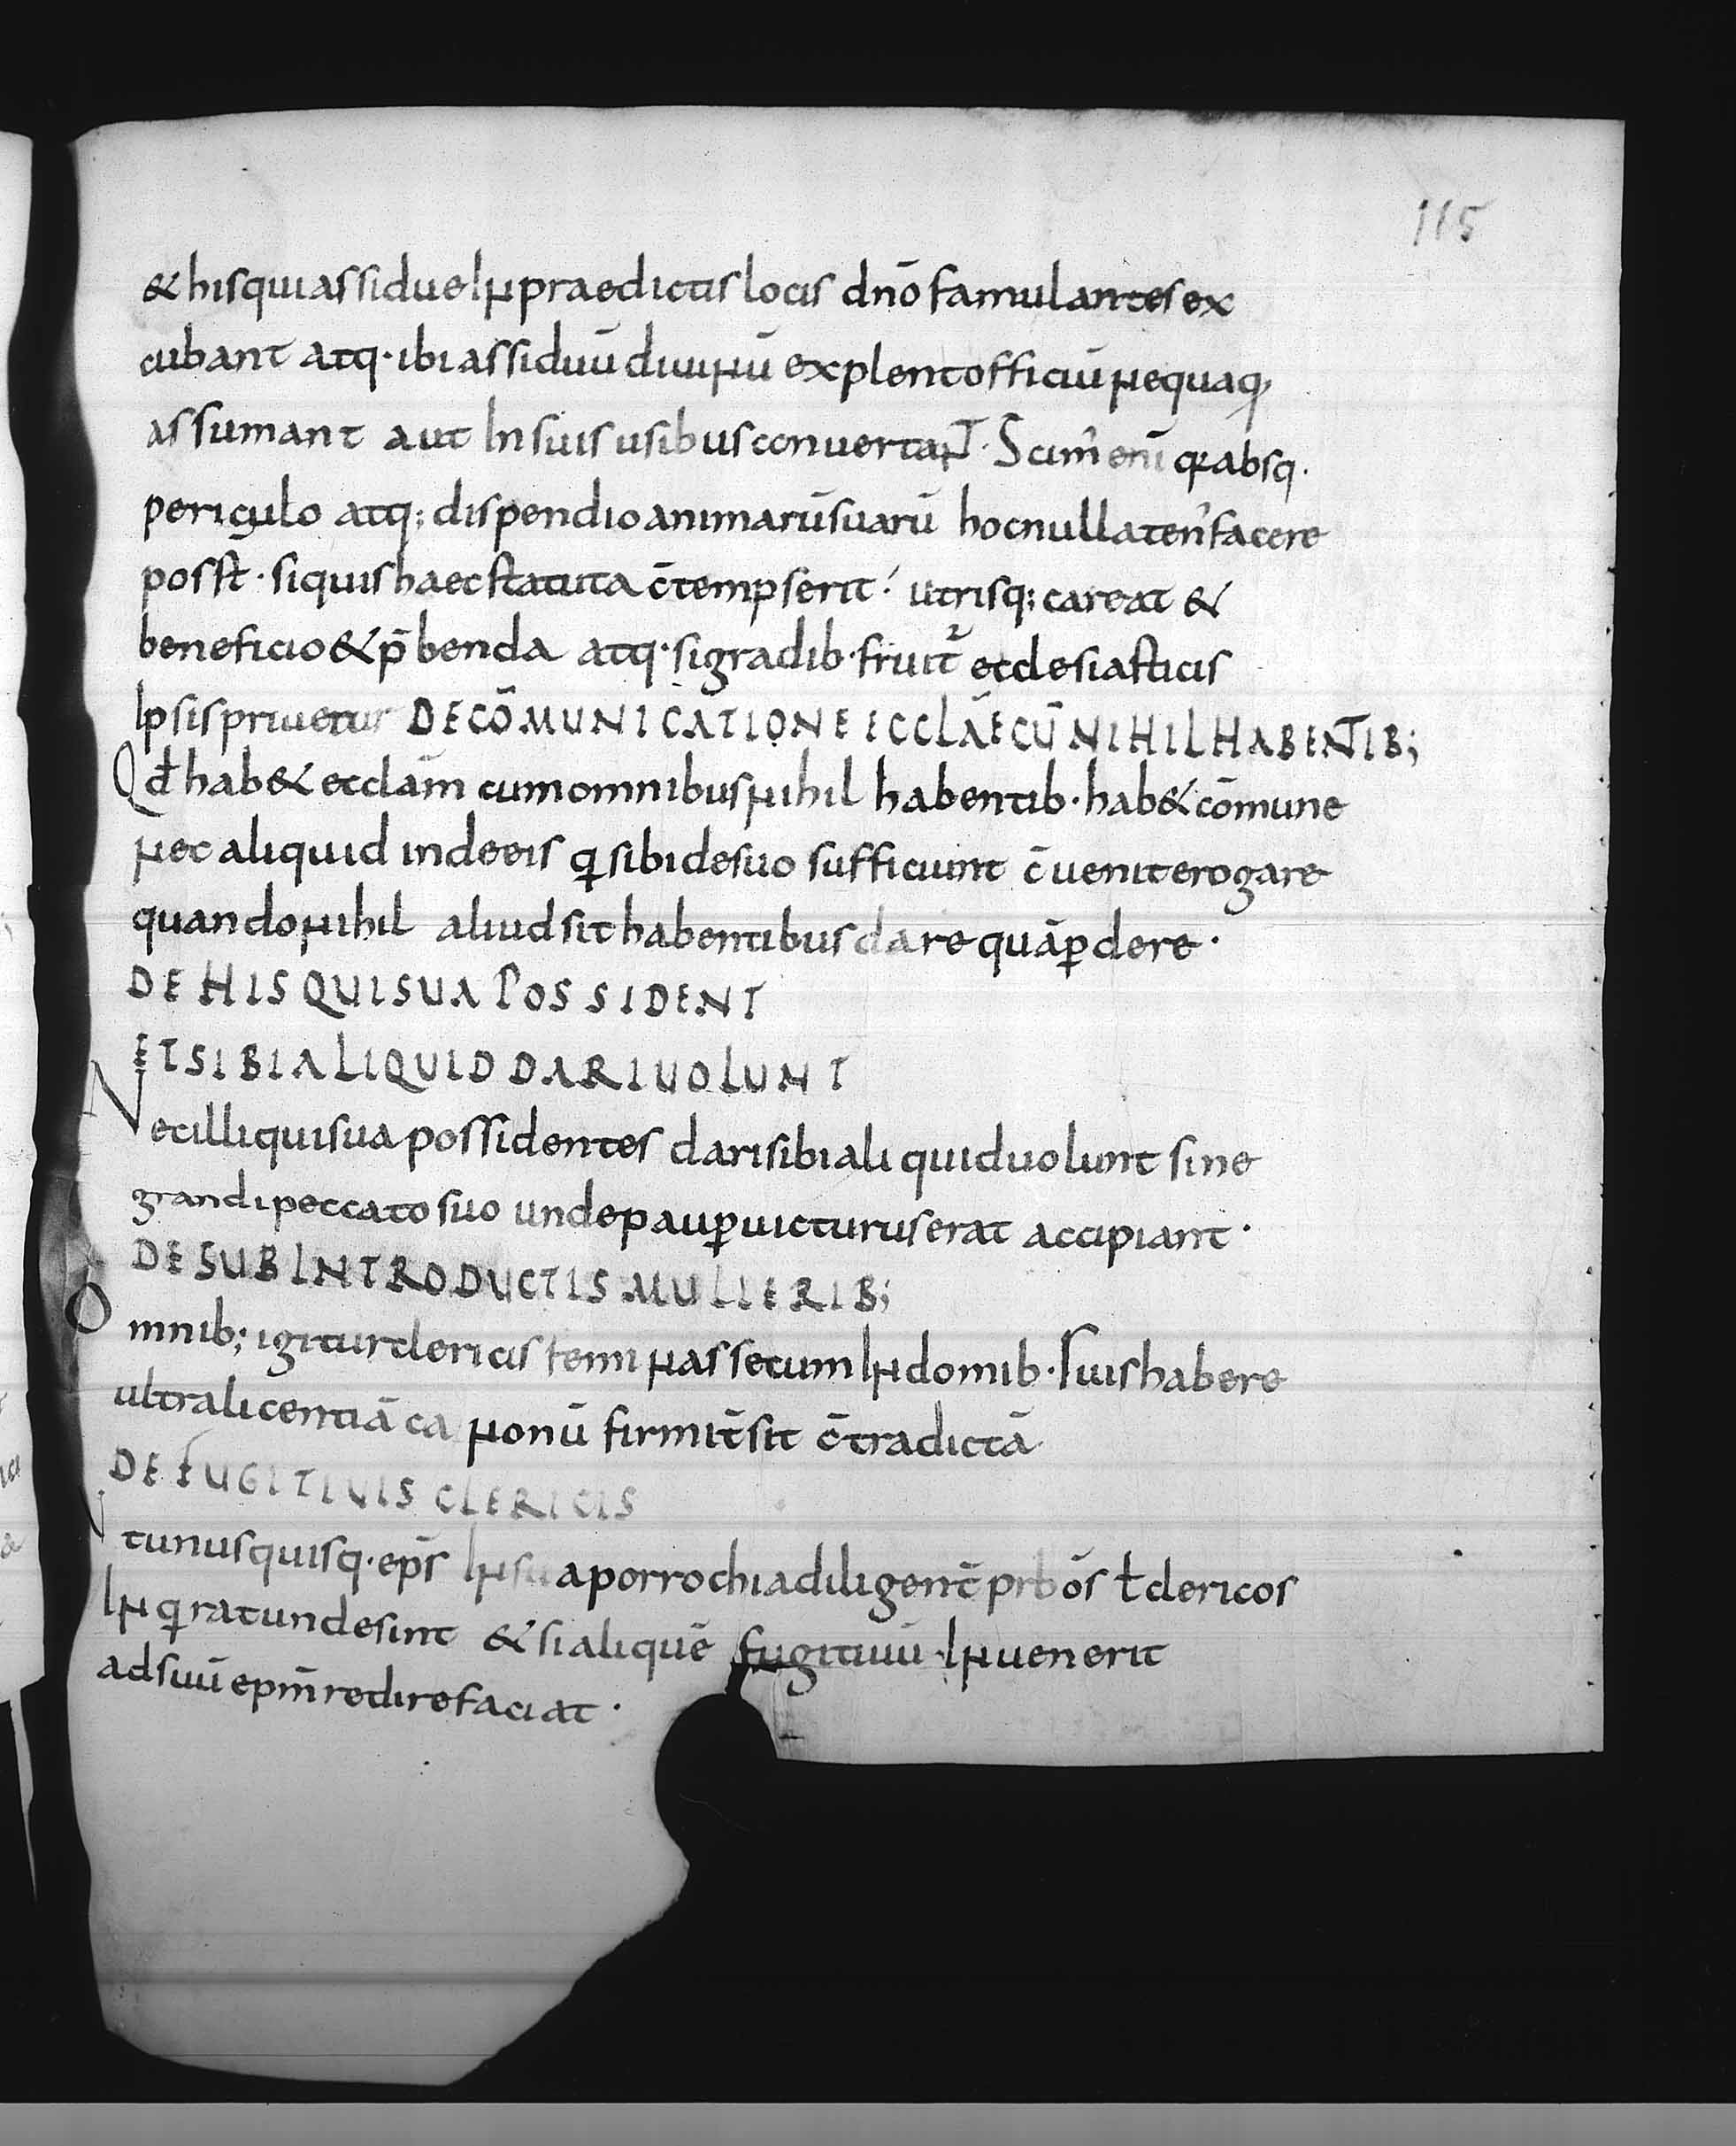 115
& his qui assidue In praedictis locis dnō famulantes ex
cubant atq· ibi assiduū diuinū explent officiū nequaq,
assumant aut In suis usibus conuertanT· Scim̓ enī qƺ absq·
periculo atq; dispendio animarū suarū hoc nullaten̓ facere
posst· si quis haec statuta c̄tempserit! utrisq; careat &
beneficio & p̄benda atq· si gradib· fruit᷑ ecclesiasticis
Ipsis priuetur DE CŌMUNICATIONE ECCLĀE CŪ NIHIL HABENTIB;
Qđ hab& ecclām cum omnibus nihil habentib· hab& cōmune
nec aliquid inde eis q̣ sibi de suo sufficiunt c̄uenit erogare
quando nihil aliud sit habentibus dare quā ꝑdere·
DE HIS QUI SUA POSSIDENT
ET SIBI ALIQUID DARI UOLUNT
Nec illi qui sua possidentes dari sibi aliquid uolunt sine
grandi peccato suo unde pauꝑ uicturus erat accipiant·
DE SUBINTRODUCTIS MULIERIB;
Omnib; igitur clericis feminas secum In domib· suis habere
ultra licentiā canonū firmit̄ sit c̄tradictā
DE FUGITIUIS CLERICIS
Ut unusquisq· ep̄s In sua porrochia diligent̄ prbōs ł clericos
Inq̣rat unde sint & si aliquē fugitiuū Inuenerit
ad suū epm̄ redire faciat·